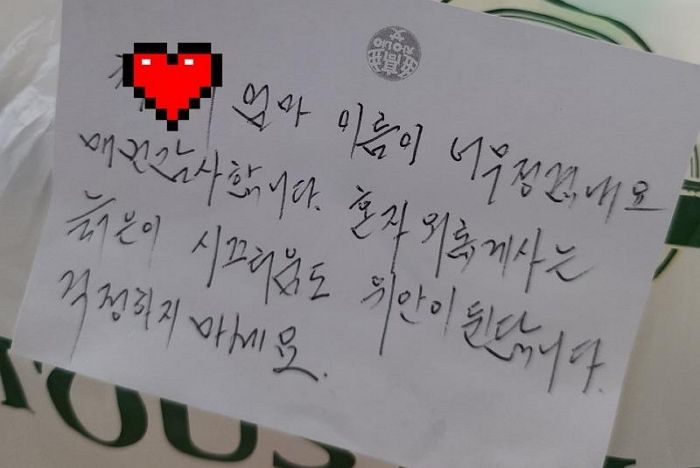 엄마 이름이 너무정겹내요
매번감사합니다. 혼자 외롭게사는
늙은이 시끄러움도 위안이 된답니다.
걱정하지 마세요.
OUS